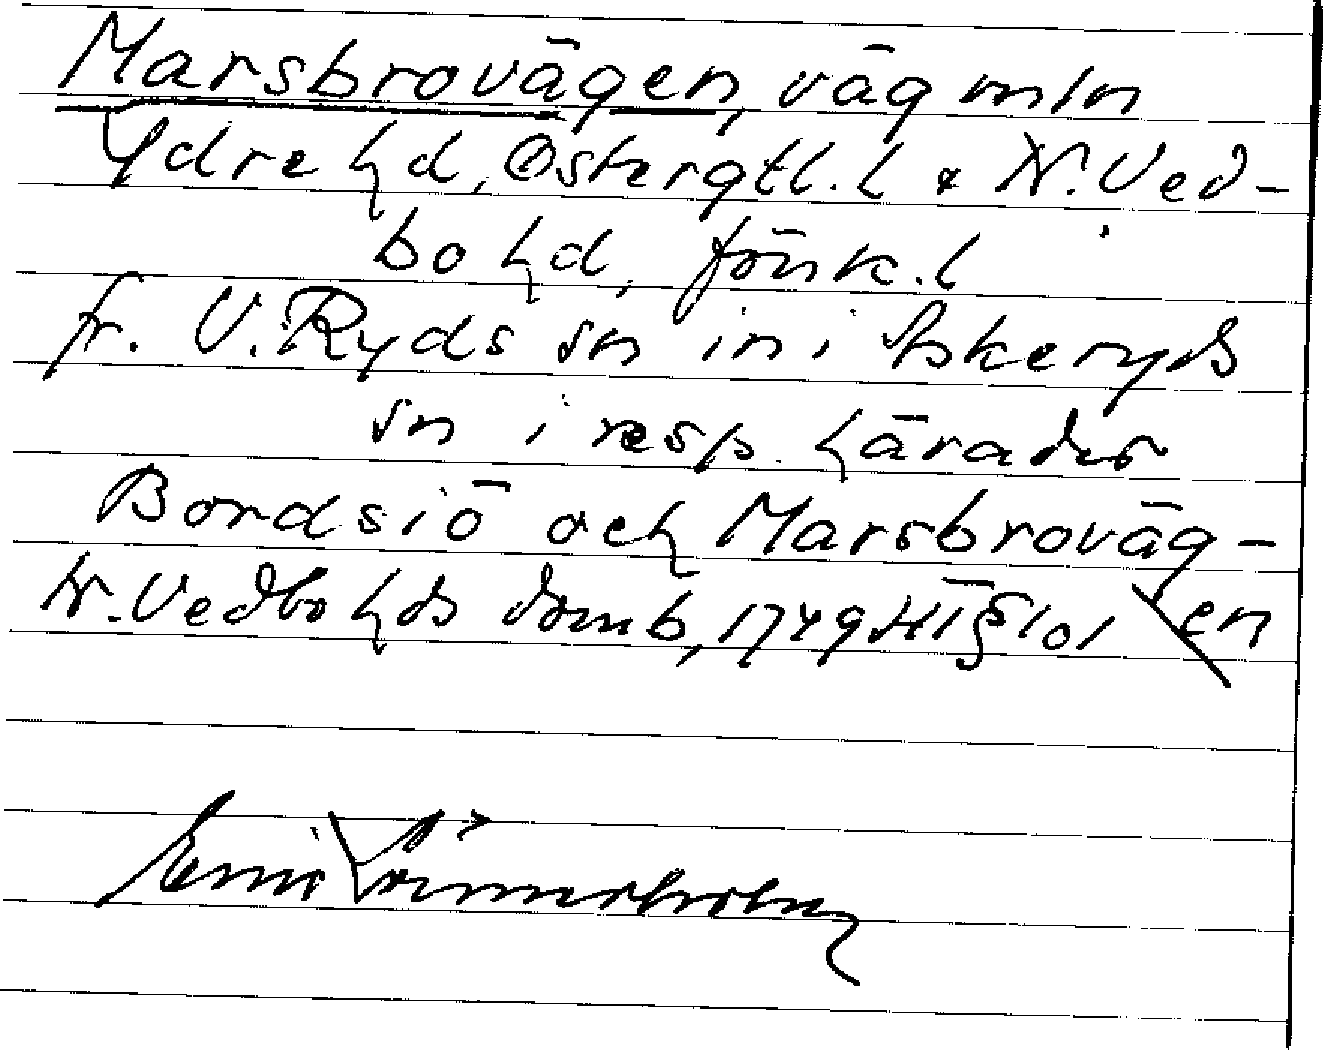 Marsbrovägen, väg mln
Ydre hd, Östergtl. l & N. Ved-
bo hd, Jönk. l
fr. V. Ryds sn in i Askeryds
sn i resp. härader
Bordsiö och Marsbroväg-
N. Vedbo hds domb, 1749 HT § 101 \ en